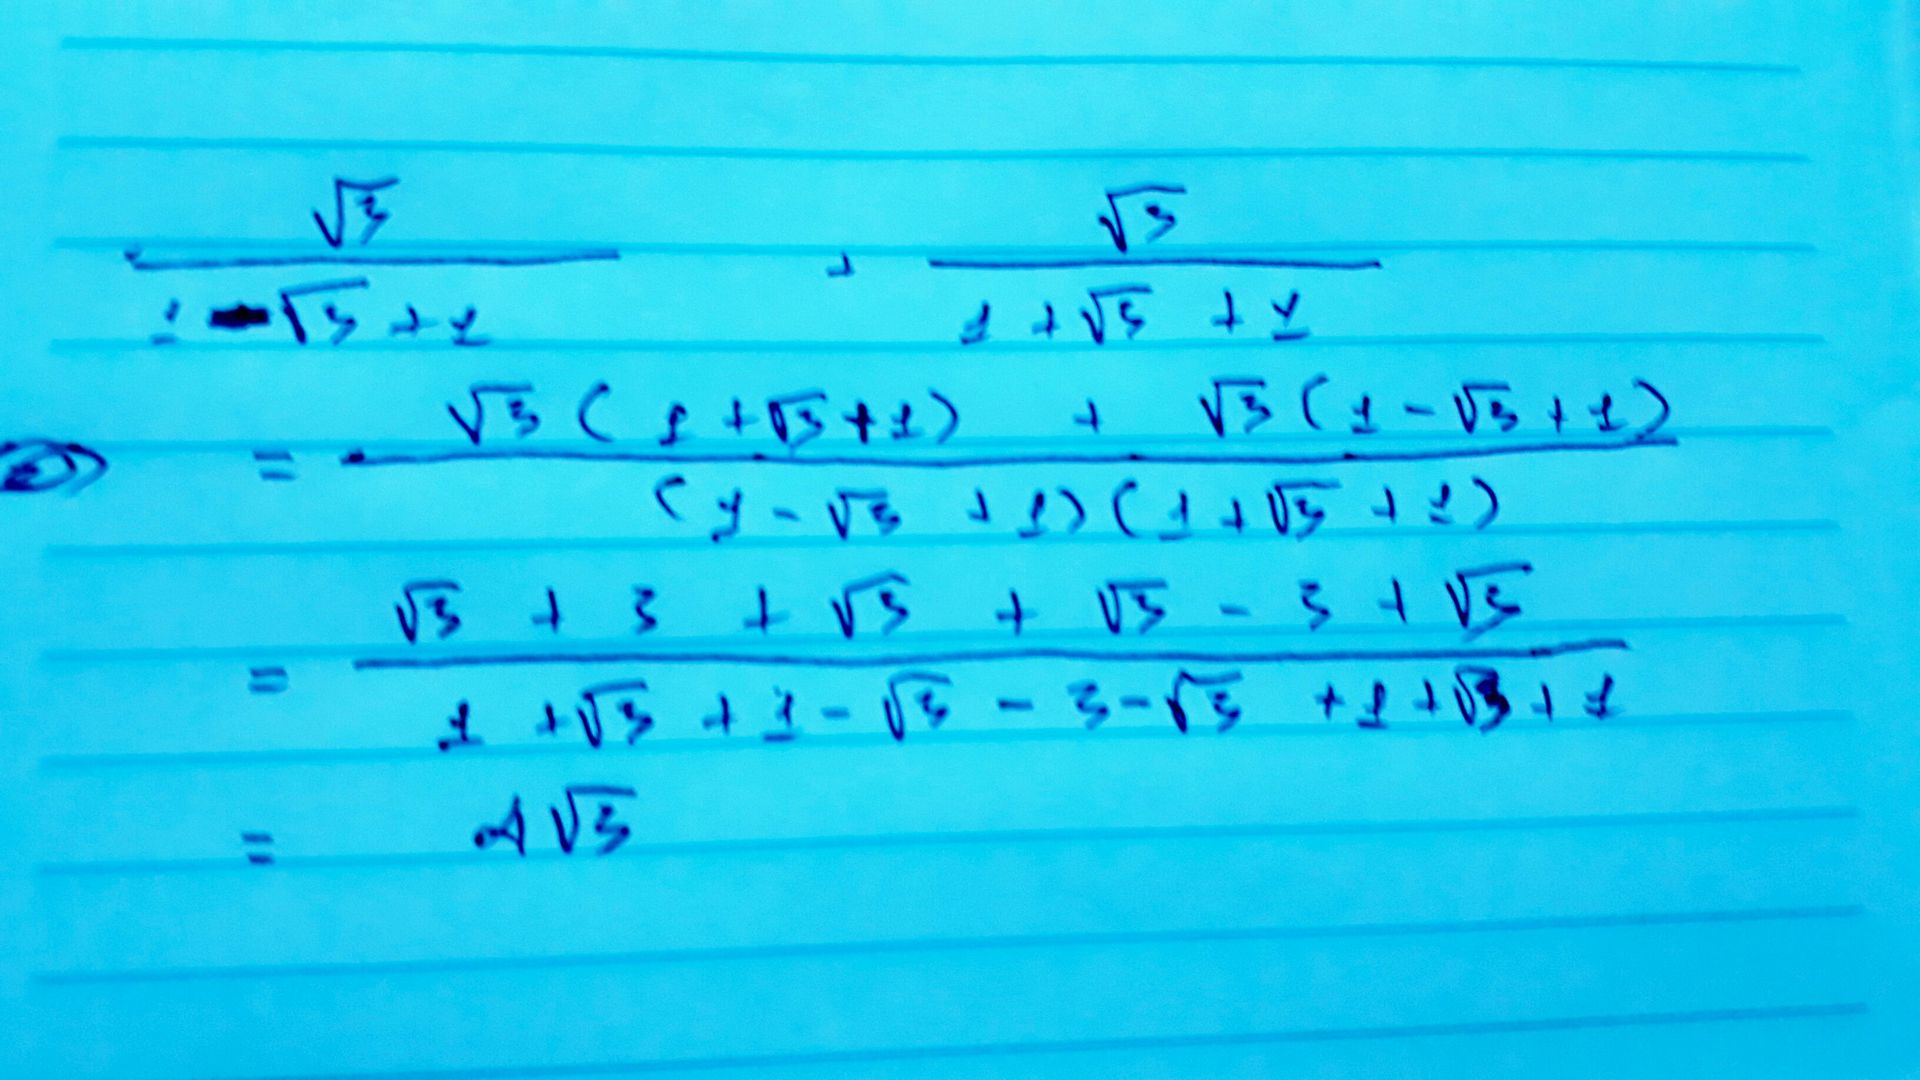 √3 / (1 - √3 + 1) + √3 / (1 + √3 + 1)
= (√3 (1 + √3 + 1) + √3 (1 - √3 + 1)) / ((1 - √3 + 1) (1 + √3 + 1))
= (√3 + 3 + √3 + √3 - 3 + √3) / (1 + √3 + 1 - √3 - 3 - √3 + 1 + √3 + 1)
= 4√3